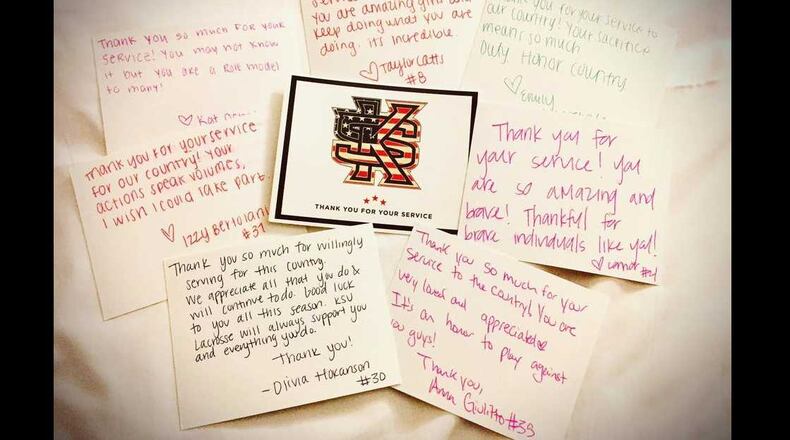 Thank you so much for your
service! You may not know
it but you are a Role model
to many!
♡ Kat
you are amazing girls and
keep doing what you are
doing. it's incredible.
♡ Taylor Catts
#8
Thank you for your service to
our country! Your sacrifice
means so much
Duty. Honor. Country
♡ Emily
Thank you for your service
for our country! Your
actions speak volumes,
I wish I could take part.
♡ Izzy Bertolani
#37
KSU
THANK YOU FOR YOUR SERVICE
Thank you for
your service! You
are so amazing and
brave! Thankful for
brave individuals like yal!
♡
Thank you so much for willingly
serving for this country.
We appreciate all that you do &
will continue to do. Good luck
to you all this season. KSU
Lacrosse will always support you
and everything you do.
Thank you!
- Olivia Hokanson
#30
Thank you so much for your
service to the country! You are
very loved and appreciated ♡
It's an honor to play against
you guys!
Thank you,
Anna Giulitto #35